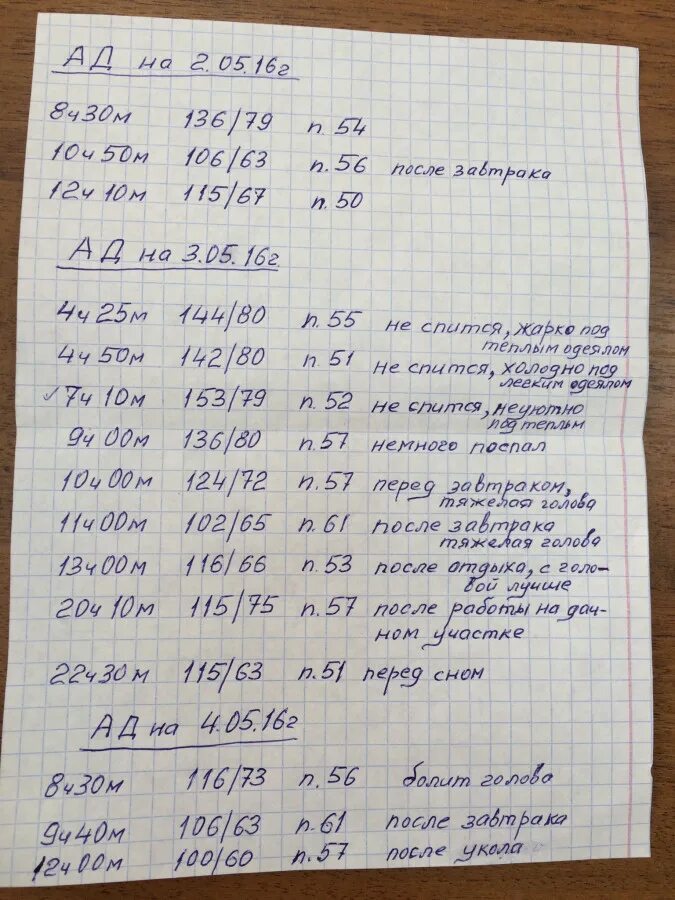 АД на 2.05.16г
8ч30м 136/79 п.54
10ч50м 106/63 п.56 после завтрака
12ч10м 115/67 п.50
АД на 3.05.16г.
4ч25м 144/80 п.55 не спится, жарко под
теплым одеялом
4ч50м 142/80 п.51 не спится, холодно под
легким одеялом
✓7ч10м 153/79 п.52 не спится, неуютно
под теплым
9ч00м 136/80 п.57 немного поспал
10ч00м 124/72 п.57 перед завтраком,
тяжелая голова
11ч00м 102/65 п.61 после завтрака
тяжелая голова
13ч00м 116/66 п.53 после отдыха, с голо-
вой лучше
20ч10м 115/75 п.57 после работы на дач-
ном участке
22ч30м 115/63 п.51 перед сном
АД на 4.05.16г
8ч30м 116/73 п.56 болит голова
9ч40м 106/63 п.61 после завтрака
12ч00м 100/60 п.57 после укола